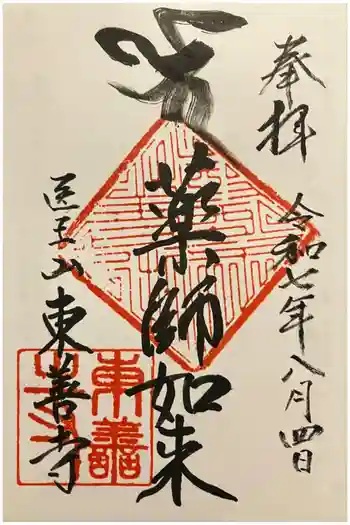 奉拝
令和七年八月四日
薬師如来
医王山東善寺
東善寺